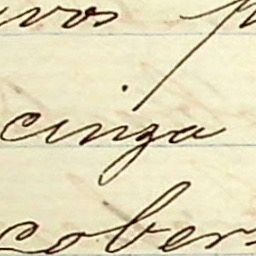 vos
cinza
cober